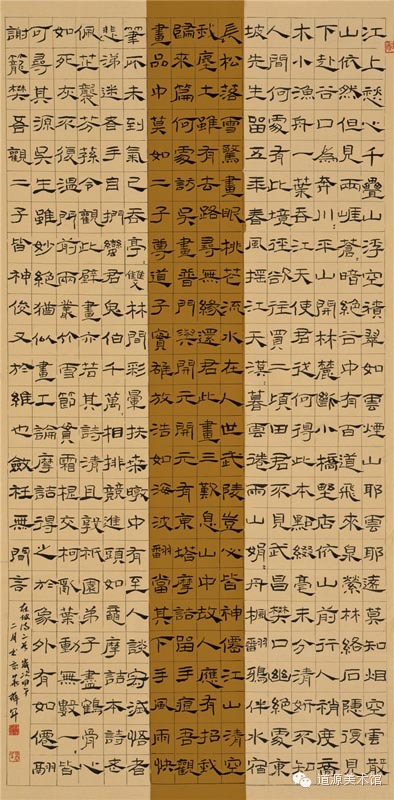 江上愁心千疊山浮空積翠如雲煙山耶雲耶遠莫知烟空雲散
山依然但見兩崖蒼蒼暗絕谷中有百道飛來泉縈林絡石隱復見
下赴谷口為奔川川平山開林麓斷小橋野店依山前行人稍度喬
木外漁舟一葉江吞天使君何從得此本點綴毫末分清妍不知
人間何處有此境徑欲往買二頃田君不見武昌樊口幽絕處東
坡先生留五年春風搖江天漠漠暮雲卷雨山娟娟丹楓翻鴉伴水宿
長松落雪驚晝眠桃花流水在人世武陵豈必皆神僊江山清空
我塵土雖有去路尋無緣還君此畫三歎息山中故人應有招我
歸來篇何處訪吳畫普門與開元開元有東塔摩詰留手痕吾觀
畫品中莫如二子尊道子實雄放浩如海波翻當其下手風雨快
筆所未到氣已吞亭亭雙林間彩暈扶桑暾中有至人談寂滅悟者
悲涕迷者手自捫蠻君鬼伯千萬萬相排競進頭如黿摩詰本詩老
佩芷襲芳蓀今觀此壁畫亦若其詩清且敦祇園弟子盡鶴骨心
如死灰不復溫門前兩叢竹雪節貫霜根交柯亂葉動無數一一皆
可尋其源吳生雖妙絕猶以畫工論摩詰得之於象外有如僊翮
謝籠樊吾觀二子皆神俊又於維也斂衽無間言
道源美术馆